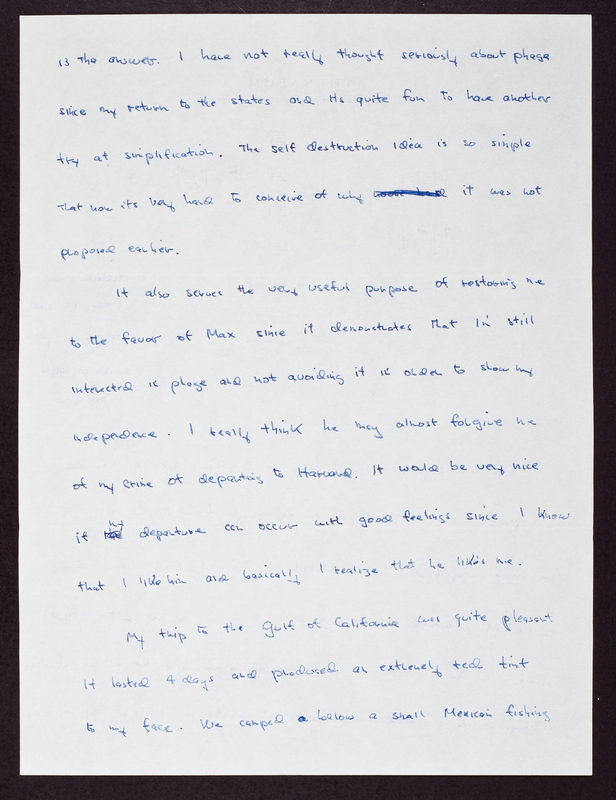 is the answer. I have not really thought seriously about phage
since my return to the states and its quite fun to have another
try at simplification. The self destruction idea is so simple
that now its very hard to conceive of why it was not
proposed earlier.
It also serves the very useful purpose of restoring me
to the favor of Max since it demonstrates that I'm still
interested in phage and not avoiding it in order to show my
independence. I really think he may almost forgive me
of my crime of departing to Harvard. It would be very nice
if my departure can occur with good feelings since I know
that I like him and basically I realize that he likes me.
My trip to the Gulf of California was quite pleasant
It lasted 4 days and produced an extremely red tint
to my face. We camped below a small Mexican fishing